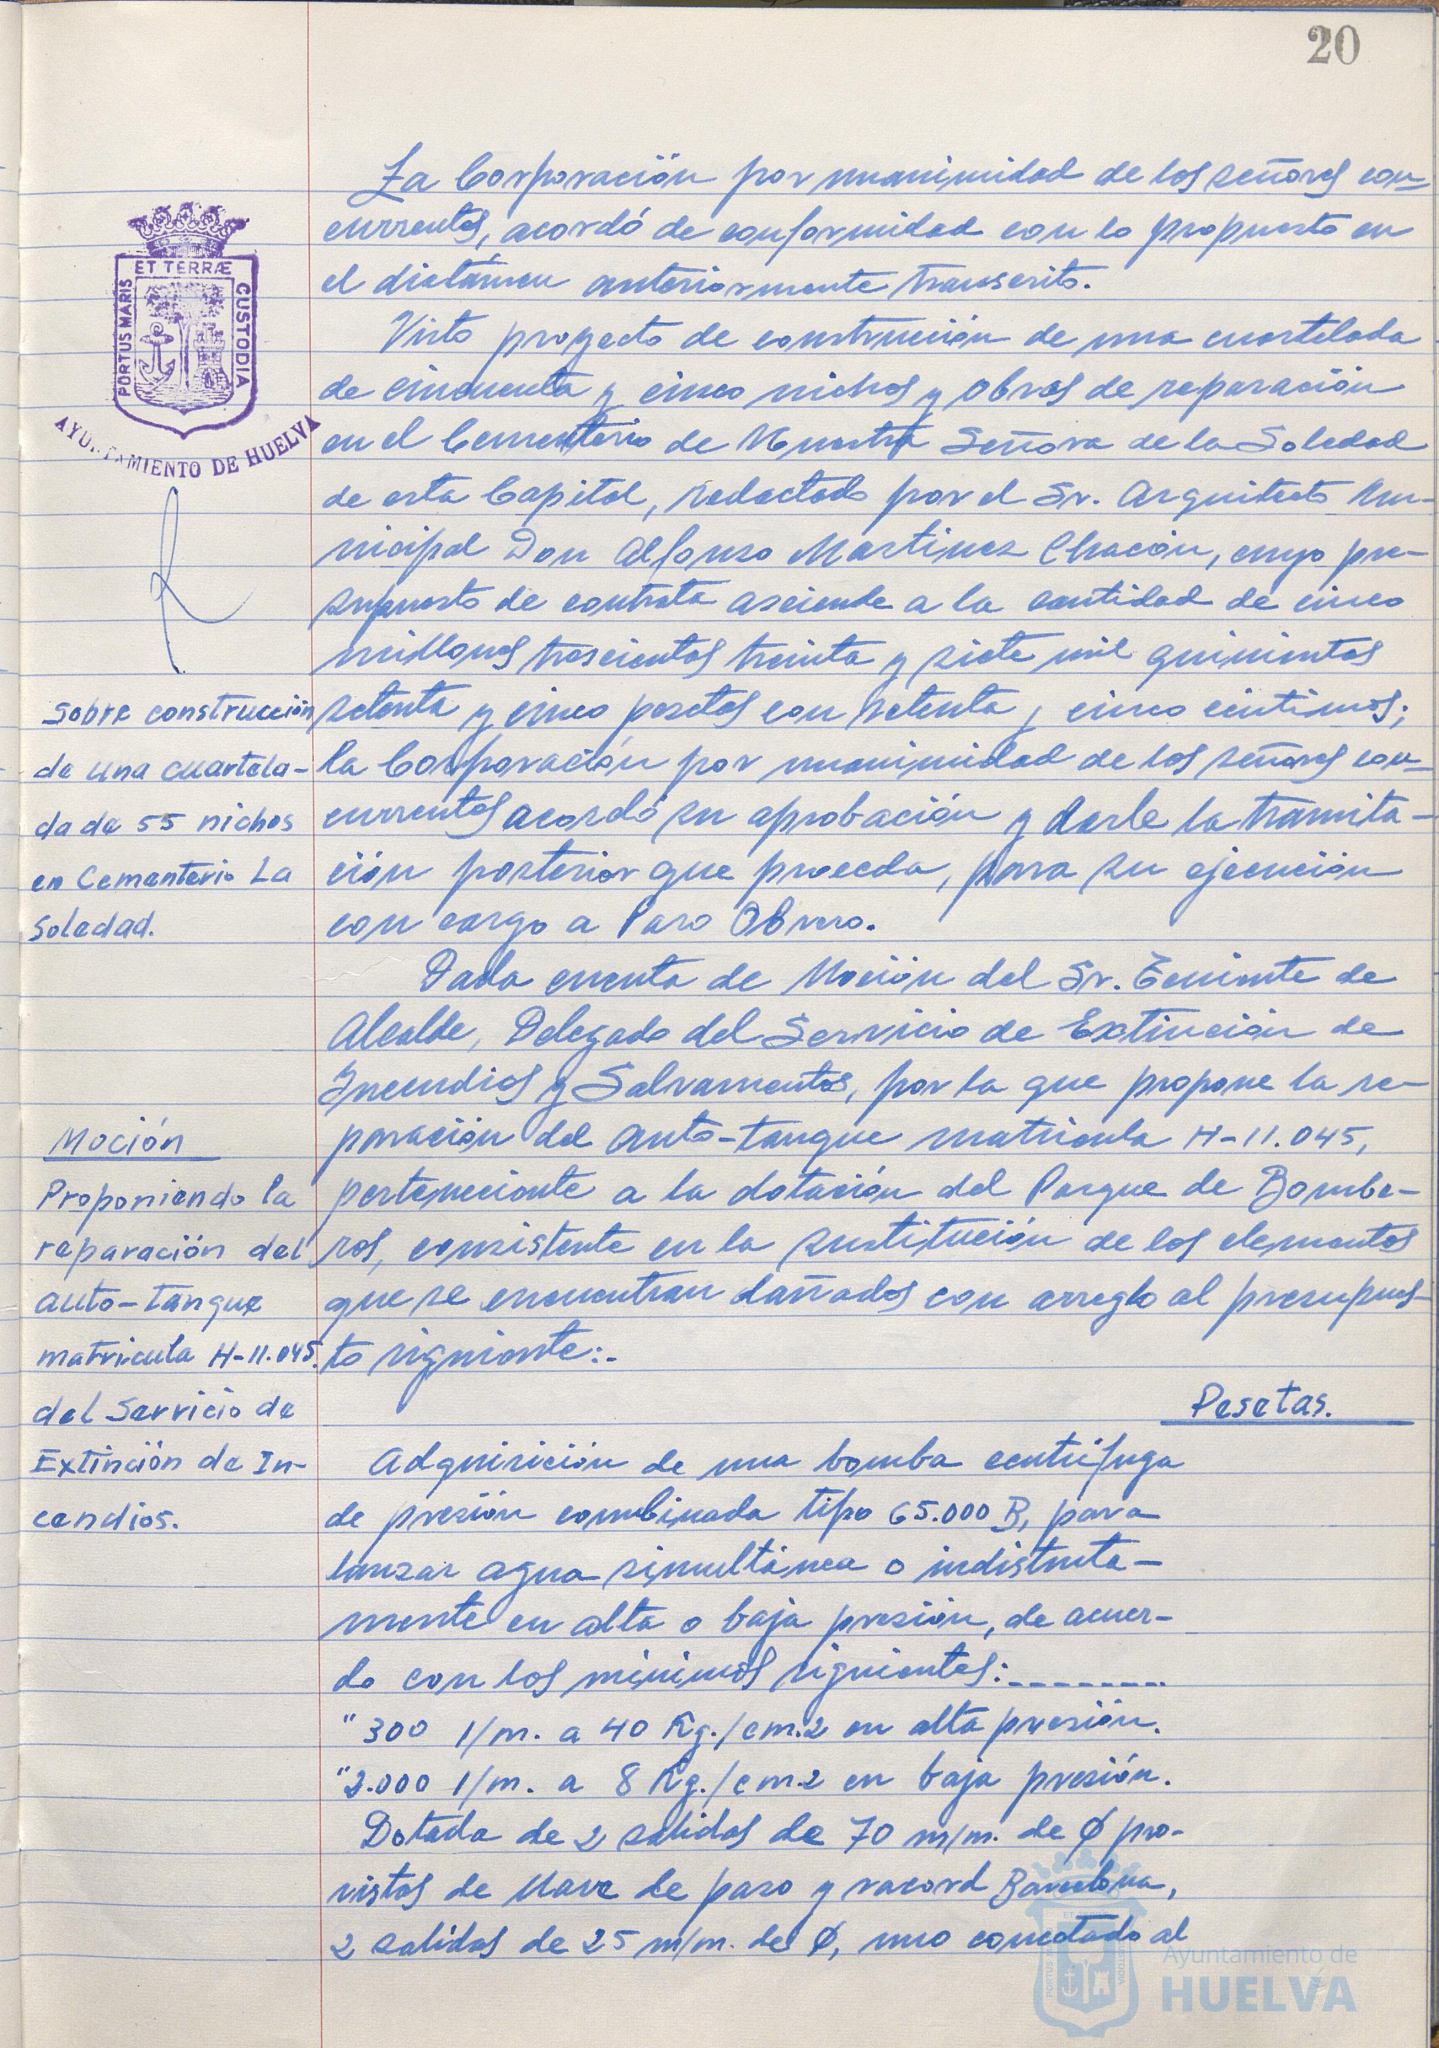 20
La Corporación por unanimidad de los señores con-
currentes, acordó de conformidad con lo propuesto en
el dictámen anteriormente transcrito.
Visto proyecto de construcción de una cuartelada
de cincuenta y cinco nichos y obras de reparación
en el Cementerio de Nuestra Señora de la Soledad
de esta Capital, redactado por el Sr. Arquitecto Mu-
nicipal Don Alfonso Martinez Chacón, cuyo pre-
supuesto de contrata asciende a la cantidad de cinco
millones trescientas treinta y siete mil quinientas
setenta y cinco pesetas con setenta y cinco céntimos;
la Corporación por unanimidad de los señores con-
currentes acordó su aprobación y darle la tramita-
ción posterior que proceda, para su ejecución
con cargo a Paro Obrero.
Dada cuenta de Moción del Sr. Teniente de
Alcalde, Delegado del Servicio de Extinción de
Incendios y Salvamentos, por la que propone la re-
paración del auto-tanque matricula H-11.045,
perteneciente a la dotación del Parque de Bombe-
ros, consistente en la sustitución de los elementos
que se encuentran dañados con arreglo al presupues-
to siguiente:-
Pesetas.
Adquisición de una bomba centrífuga
de presión combinada tipo 65.000 B, para
lanzar agua simultánea o indistinta-
mente en alta o baja presión, de acuer-
do con los mínimos siguientes:-------
"300 l/m. a 40 Kg./cm.2 en alta presión.
"2.000 l/m. a 8 Kg./cm.2 en baja presión.
Dotada de 2 salidas de 70 m/m. de Ø pro-
vistas de llave de paso y racord Barcelona,
2 salidas de 25 m/m. de Ø, uno conectado al
ET TERRÆ
PORTUS MARIS
CUSTODIA
AYUNTAMIENTO DE HUELVA
Sobre construcción
de una cuartela-
da de 55 nichos
en Cementerio La
Soledad.
Moción
Proponiendo la
reparación del
auto-tanque
matricula H-11.045.
del Servicio de
Extinción de In-
cendios.
Ayuntamiento de
HUELVA